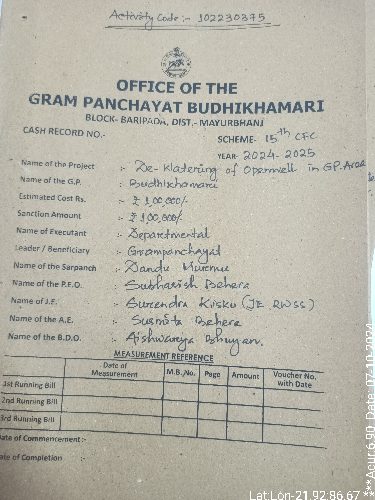 Activity Code :- 102230375
OFFICE OF THE
GRAM PANCHAYAT BUDHIKHAMARI
BLOCK- BARIPADA, DIST.- MAYURBHANJ
CASH RECORD NO.-
SCHEME- 15th CFC
YEAR- 2024-2025
Name of the Project :- De-Watering of Openwell in GP. Area
Name of the G.P. :- Budhikhamari
Estimated Cost Rs. :- ₹ 1,00,000/-
Sanction Amount :- ₹ 1,00,000/-
Name of Executant :- Departmental
Leader / Beneficiary :- Grampanchayat
Name of the Sarpanch :- Dandu Murmu
Name of the P.E.O. :- Subhasish Behera
Name of J.E. :- Surendra Kisku (JE RWSS)
Name of the A.E. :- Susmita Behera
Name of the B.D.O. :- Aishwarya Bhuyan.
MEASUREMENT REFERENCE
Date of Measurement M.B.,No. Page Amount Voucher No. with Date
1st Running Bill
2nd Running Bill
3rd Running Bill
Date of Commencement :-
Date of Completion
Lat:Lon-21.92:86.67
***Acur:6.90 Date: 07-10-2024